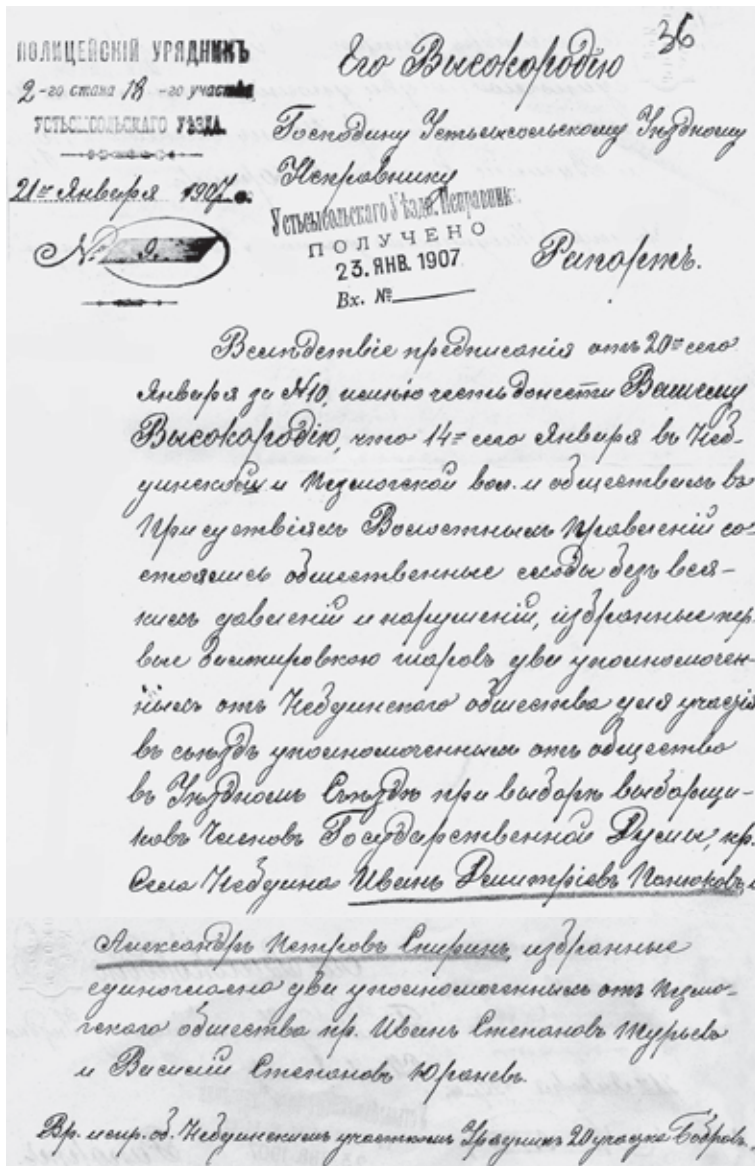 36
ПОЛИЦЕЙСКІЙ УРЯДНИКЪ
2-го стана 18-го участка
УСТЬСЫСОЛЬСКАГО УѢЗДА.
21го Января 1907 г.
№ 9.
Его Высокородію
Господину Устьсысольскому Уѣздному
Исправнику
Устьсысольскаго Уѣздн. Исправник.
ПОЛУЧЕНО
23. ЯНВ. 1907
Вх. №
Рапортъ.
Вслѣдствіе предписанія отъ 20го сего
Января за №10, имѣю честь донести Вашему
Высокородію, что 14го сего Января въ Неб-
динской и Пезмогской вол. и обществахъ въ
Присутствіяхъ Волостныхъ Правленій со-
стоялись общественные сходы безъ вся-
кихъ давленій и нарушеній, избранные пер-
вые баллотировкою шаровъ два уполномочен-
ныхъ отъ Небдинскаго общества для участія
въ съѣздѣ уполномоченныхъ отъ общества
въ Уѣздномъ Съѣздѣ при выборѣ выборщи-
ковъ Членовъ Государственной Думы, кр.
Села Небдина Иванъ Дмитріевъ Панюковъ и
Александръ Петровъ Спиринъ, избранные
единогласно два уполномоченныхъ отъ Пезмо-
гскаго общества кр. Иванъ Степановъ Турьевъ
и Василій Степановъ Юраневъ.
Вр. испр. об. Небдинскимъ участкомъ Урядникъ 20 участка Бобровъ.